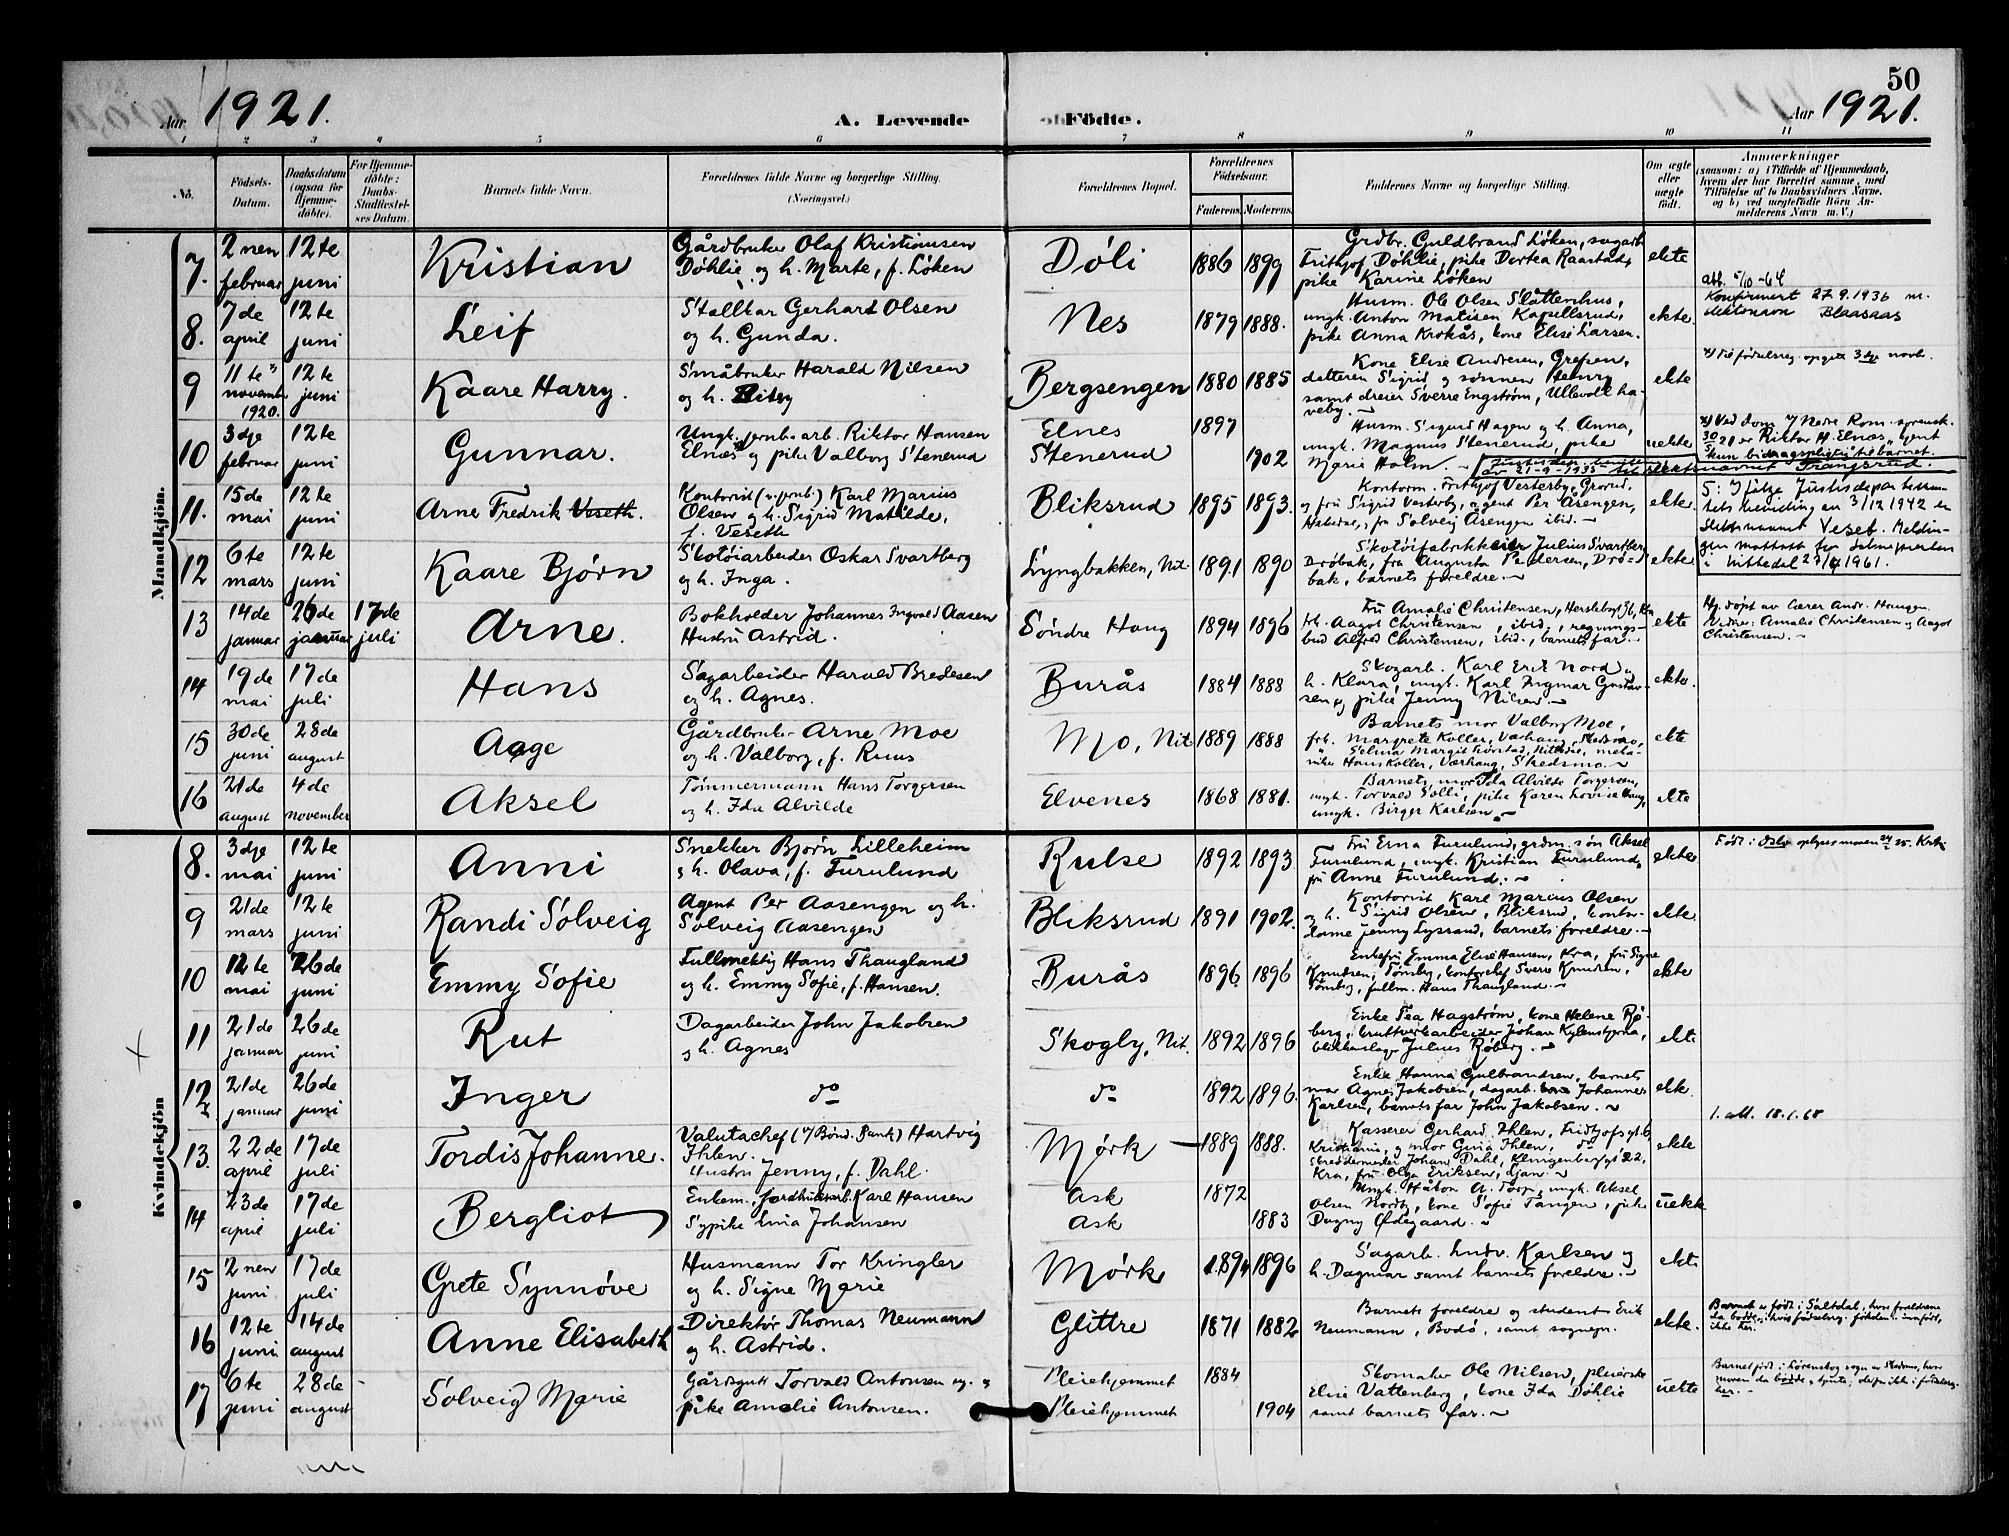 50
Aar 1921.
A. Levende Födte.
Aar 1921.
1 2 3 4 5 6 7 8 9 10 11
No.
Födsels-Datum.
Daabsdatum (ogsaa for Hjemme-döbte).
For Hjemme-döbte: Daabs-Stadfæstel-ses Datum.
Barnets fulde Navn.
Forældrenes fulde Navne og borgerlige Stilling. (Næringsvei.)
Forældrenes Bopæl.
Forældrenes Födselsaar.
Faderens. Moderens.
Faddernes Navne og borgerlige Stilling.
Om ægte eller uægte födt.
Anmærkninger
(saasom: a) i Tilfælde af Hjemmedaab, hvem der har forrettet samme, med Tilföielse af to Daabsvidners Navne, og b) ved uægtefödte Börn An-melderens Navn m. V.)
Mandkjön.
7. 2nen februar 12te juni Kristian
Gårdbruker Olaf Kristiansen
Döhlie og h. Marte, f. Löken
Döli 1886 1899
Grdbr. Guldbrand Löken, sagarb.
Frithjof Döhlie, pike Dortea Raastad,
pike Karine Löken
ekte
att. 5/10-64
8. 7de april 12te juni Leif
Stallkar Gerhard Olsen
og h. Gunda.
Nes 1879 1888.
Husm. Ole Olsen Slåttenhus,
ungk. Anton Matisen Kapellsrud,
pike Anna Krokås, kone Elise Larsen.
ekte.
Konfirmert 27.9.1936 m.
slektsnavn Blaasaas
9 11te november 1920. 12te juni Kaare Harry.
Småbruker Harald Nilsen
og h.
Bergsengen 1880 1885
Kone Elise Andresen, Grefsen,
datteren Sigrid og sønnen Henry
samt dreier Sverre Engström, Ullevoll ha-
veby.
ekte
*) Til födselsreg. opgett 3dje novb.
10 3dje februar 12te juni Gunnar.
Ungk. jernb. arb. Riktor Hansen
Elnæs og pike Valborg Stenerud
Elnes 1897
Stenerud 1902
Husm. Sigurd Hagen og h. Anna,
ungk. Magnus Stenerud, pike
Marie Holm.
uekte
*) Ved dom v/ Nedre Rom.
er Riktor H. Elnæs kjent
"kun bidragspligtig" til barnet.
av 21-9-1935 slektsnavnet Trangsrud.
11. 15de mai 12te juni Arne Fredrik Veseth.
Kontorist (v. jernb.) Karl Marius
Olsen og h. Sigrid Matilde,
f. Veseth
Bliksrud 1895 1893.
Kontorm. Frithjof Vesterby, Grorud,
og fru Sigrid Vesterby, agent Per Åsengen,
fru Solveig Åsengen ibid.
ekte.
5: Ifølge Justisdepartemen-
tets melding av 3/12 1942 er
slektsnavnet Veset. Meldin-
gen mottatt fra
i Nittedal 1961.
12 6te mars 12te juni Kaare Bjørn
Skotøiarbeider Oskar Svartberg
og h. Inga.
Lyngbakken, Nit. 1891 1890
Skotøifabrikkeier Julius Svartberg,
Drøbak, fru Augusta Pedersen, Drø-
bak, barnets foreldre.
ekte
13 14de januar 26de januar 17de juli Arne.
Bokholder Johannes Ingvald Aasen
Hustru Astrid.
Söndre Haug 1894 1896
Fru Amalie Christensen, Herslebsgt 36, Kra
Aagot Christensen, ibid., regnings-
bud Alfred Christensen, ibid., barnets far.
ekte
Hj. døpt av Lærer Andr. Haugen.
Vidner: Amalie Christensen og Aagot
Christensen.
14 19de mai 17de juli Hans
Sagarbeider Harald Bredesen
og h. Agnes.
Burås 1884 1888
Skogarb. Karl Erik Nord og
h. Klara, ungk. Karl Ingmar Gustav-
sen og pike Jenny Nilsen.
ekte.
15 30de juni 28de august Aage
Gårdbruker Arne Moe
og h. Valborg, f. Ruus
Mo, Nit 1889 1888
Barnets mor Valborg Moe,
frk. Margrete Koller, Værhaug, Skedsmo,
Hans Koller, Værhaug, Skedsmo.
ekte
16 21de august 4de november Aksel
Tömmermann Hans Torgersen
og h. Ida Alvilde
Elvenes 1868 1881.
Barnets mor Ida Alvilde Torgersen,
ungk. Torvald Solli, pike Karen Lovise Haug,
ungk. Birger Karlsen.
ekte
Kvindekjön
8. 3dje mai 12te juni Anni
Snekker Bjørn Lilleheim
og h. Olava, f. Furulund
Rulse 1892 1893.
Fru Erna Furulund, grdm. søn Aksel
Furulund, ungk. Kristian Furulund,
fru Anne Furulund.
ekte
Født i Oslo
9 21de mars 12te juni Randi Solveig
Agent Per Aasengen og h.
Solveig Aasengen
Bliksrud 1891 1902.
Kontorist Karl Marius Olsen
og h. Sigrid Olsen, Bliksrud, kontor-
dame Jenny Lyssand, barnets foreldre.
ekte
10 12te mai 26de juni Emmy Sofie
Fullmektig Hans Thaugland
og h. Emmy Sofie, f. Hansen.
Burås 1896 1896
Enkefru Emma Elise Hansen, Kra, fru Signe
Knudsen, Tønsbg, kontorchef Sverre Knudsen,
Tønsbg, fullm. Hans Thaugland.
ekte
11 21de januar 26de juni Rut
Dagarbeider John Jakobsen
og h. Agnes
Skogly, Nit. 1892 1896
Enke Tea Hagström, kone Helene Rø-
berg, Johan
blikkenslager Julius Røberg.
ekte
12 21de januar 26de juni Inger
do
do 1892 1896.
Enke Hanna Gulbrandsen, barnets
mor Agnes Jakobsen, dagarb. Johannes
Karlsen, barnets far John Jakobsen.
ekte.
1. att. 18.1.68
13. 22de april 17de juli Tordis Johanne.
Valutachef (v/ Bønd. bank) Hartvig
Ihlen.
Hustru Jenny, f. Dahl.
Mørk 1889 1888.
Kasserer Gerhard Ihlen, Fridtjofsgt. 6,
Kristiania, og mor Gina Ihlen, do
skreddermester Johan Dahl, Klingenberggt 22,
Kra, fru Olga Eriksen, Ljan.
ekte
14 23de april 17de juli Bergliot
Enkem., jordbruksarb. Karl Hansen
Sypike Lina Johansen
Ask 1872
Ask 1883
Ungk. Håkon A. Torp, ungk. Aksel
Olsen Nordby, kone Sofie Tangen, pike
Dagny Ødegaard.
uekte
15 2nen juni 17de juli Grete Synnöve
Husmann Tor Kringler
og h. Signe Marie
Mørk 1894 1896
Sagarb. Ludv. Karlsen og
h. Dagmar samt barnets foreldre.
ekte
16 12te juni 14de august Anne Elisabeth
Direktör Thomas Neumann
og h. Astrid.
Glittre 1871 1882
Barnets foreldre og student Erik
Neumann, Bodö, samt sognepr.
ekte.
Barnet er født i Saltdal, hvor foreldrene
da bodde, i hvis födselsreg. födselen er innfört,
ikke her.
17 6te juni 28de august Solveig Marie
Gårdsgutt Torvald Antonsen og
pike Amalie Antonsen.
Pleiehjemmet 1884
Pleiehjemmet 1904
Skomaker Ole Nilsen, pleierske
Elise Vattenberg, kone Ida Döhlie
samt barnets far.
uekte
Barnet født i Lørenskog sogn av Skedsmo, hvor
moren da bodde og tjente; derfor ikke i födselsreg.
her.